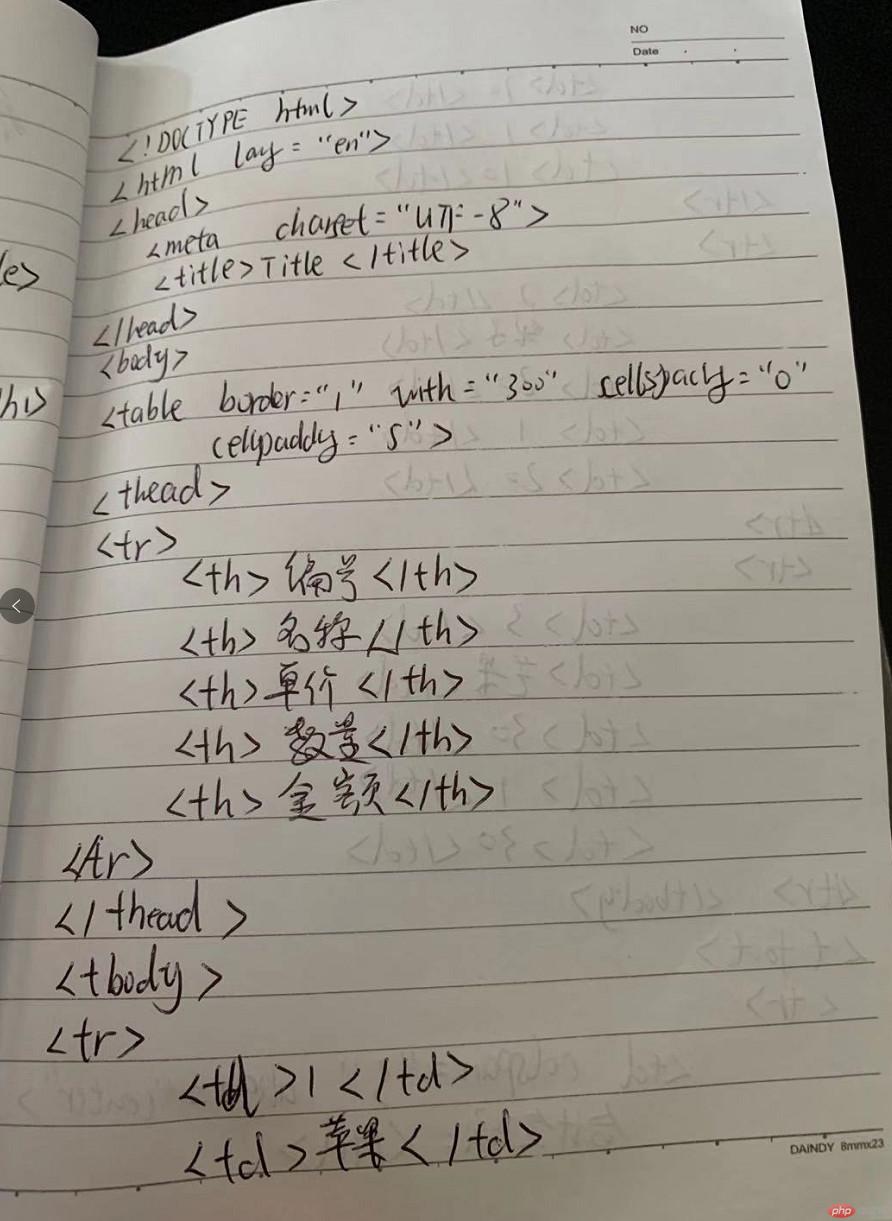 NO
Date
<!DOCTYPE html>
<html lay = "en">
<head>
<meta charset = "UTF-8">
<title> Title </title>
</head>
<body>
<table border = "1" with = "300" cellspacy = "0"
cellpaddy = "5">
<thead>
<tr>
<th> 编号 </th>
<th> 名称 </th>
<th> 单价 </th>
<th> 数量 </th>
<th> 金额 </th>
</tr>
</thead>
<tbody>
<tr>
<td> 1 </td>
<td> 苹果 </td>
le>
h1>
DAINDY 8mmx23
php